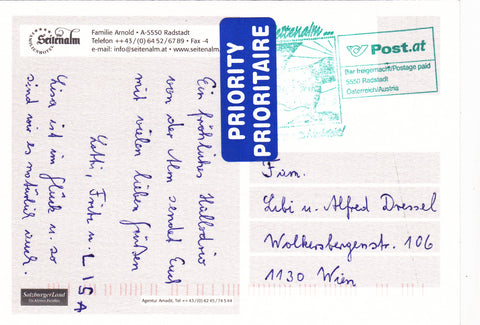 Seitenalm
Familie Arnold • A-5550 Radstadt
Telefon ++43/(0)6452/6789 • Fax -4
e-mail: info@seitenalm.at • www.seitenalm.
Ein fröhliches Hallodrio
von der Alm sendet Euch
mit vielen lieben Grüßen
Lotti, Fritz u. LISA
Lisa ist im Glück u. so
sind wir es natürlich auch.
SalzburgerLand
Agentur Arnadt, Tel ++43/(0)6245/74544
PRIORITY
PRIORITAIRE
Seitenalm...
Post.at
Bar freigemacht/Postage paid
5550 Radstadt
Österreich/Austria
Fam.
Libi u. Alfred Dressel
Wolkersbergenstr. 106
1130 Wien